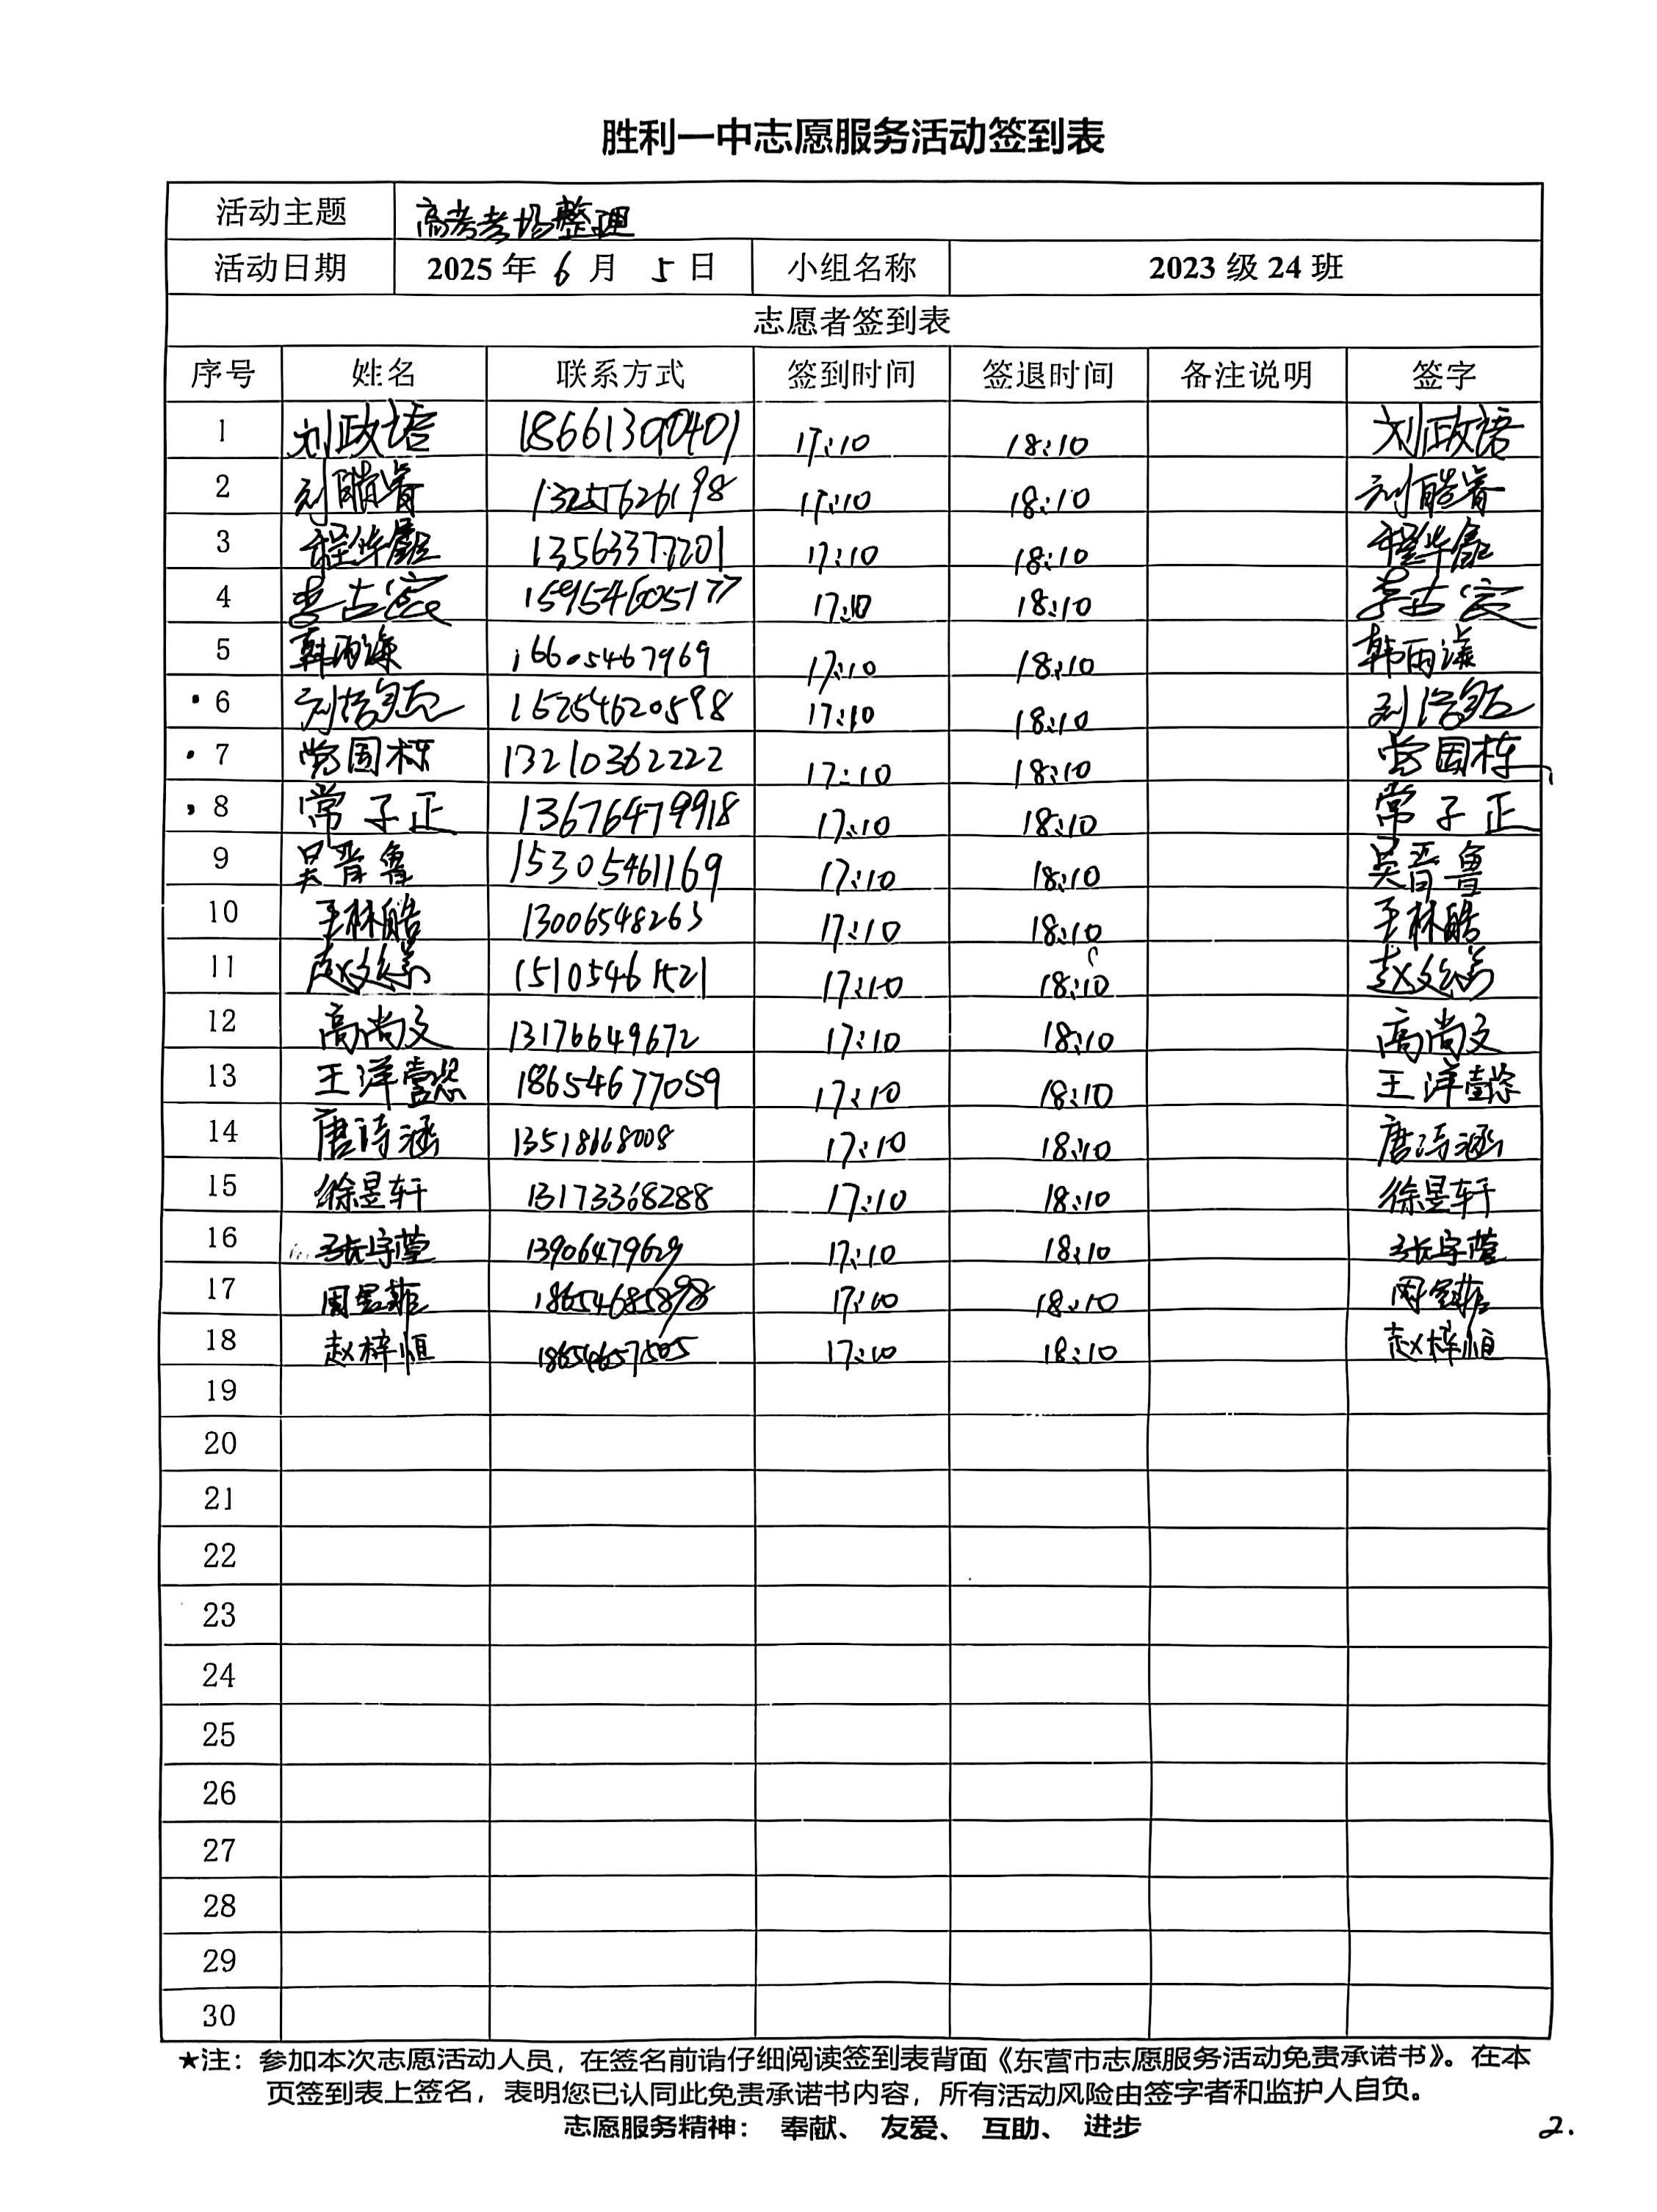 胜利一中志愿服务活动签到表
活动主题 高考考场整理
活动日期 2025 年 6 月 5 日 小组名称 2023 级 24 班
志愿者签到表
序号 姓名 联系方式 签到时间 签退时间 备注说明 签字
1 刘政语 18661300401 17:10 18:10 刘政语
2 刘皓睿 13257626198 17:10 18:10 刘皓睿
3 程华磊 13563377201 17:10 18:10 程华磊
4 李古宸 15954605177 17:10 18:10 李古宸
5 韩雨濛 16605467969 17:10 18:10 韩雨濛
6 15254620598 17:10 18:10
7 党国栋 13210362222 17:10 18:10 党国栋
8 常子正 13676479918 17:10 18:10 常子正
9 吴晋鲁 15305461169 17:10 18:10 吴晋鲁
10 王林皓 13006548263 17:10 18:10 王林皓
11 15105461521 17:10 18:10
12 高尚文 13176649672 17:10 18:10 高尚文
13 王洋 18654677059 17:10 18:10 王洋
14 唐诗涵 13518668008 17:10 18:10 唐诗涵
15 徐昱轩 13173368288 17:10 18:10 徐昱轩
16 张宇莹 13906479629 17:10 18:10 张宇莹
17 周昱菲 18654685898 17:10 18:10 周昱菲
18 赵梓恒 18654657505 17:10 18:10 赵梓恒
19
20
21
22
23
24
25
26
27
28
29
30
★注：参加本次志愿活动人员，在签名前请仔细阅读签到表背面《东营市志愿服务活动免责承诺书》。在本
页签到表上签名，表明您已认同此免责承诺书内容，所有活动风险由签字者和监护人自负。
志愿服务精神： 奉献、 友爱、 互助、 进步
2.